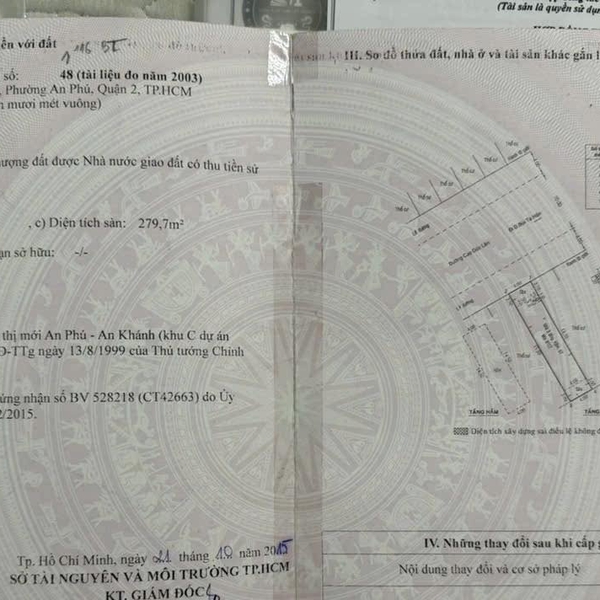 (Tài sản là quyền sử dụ
ền với đất
số: 48 (tài liệu đo năm 2003)
, Phường An Phú, Quận 2, TP.HCM
n mươi mét vuông)
ượng đất được Nhà nước giao đất có thu tiền sử
, c) Diện tích sàn: 279,7m²
ạn sở hữu: -/-
thị mới An Phú - An Khánh (khu C dự án
Đ-TTg ngày 13/8/1999 của Thủ tướng Chính
ứng nhận số BV 528218 (CT42663) do Ủy
2/2015.
Tp. Hồ Chí Minh, ngày 21 tháng 10 năm 2015
SỞ TÀI NGUYÊN VÀ MÔI TRƯỜNG TP.HCM
KT. GIÁM ĐỐC
III. Sơ đồ thửa đất, nhà ở và tài sản khác gắn l
Thổ cư
Thổ cư
Thổ cư
Thổ cư
Thổ cư
Lề đường
Đường Cao Đức Lân
Lề đường
TẦNG HẦM
TẦNG
Diện tích xây dựng sai điều lệ không đ
IV. Những thay đổi sau khi cấp g
Nội dung thay đổi và cơ sở pháp lý